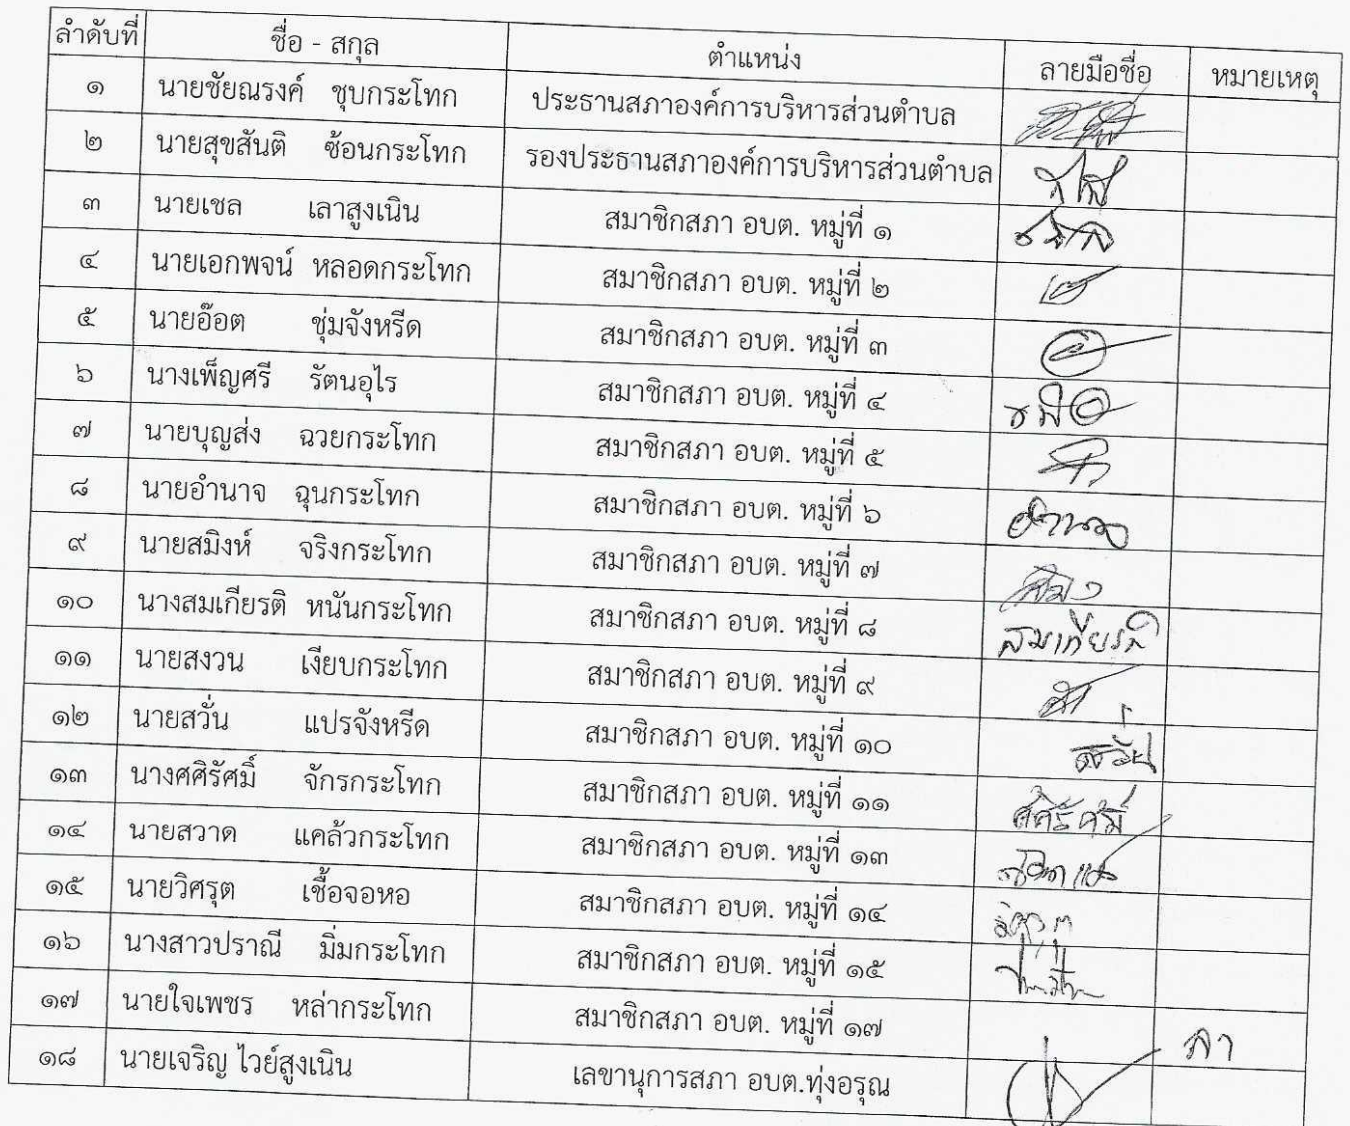 ลำดับที่ ชื่อ - สกุล ตำแหน่ง ลายมือชื่อ หมายเหตุ
๑ นายชัยณรงค์ ชุบกระโทก ประธานสภาองค์การบริหารส่วนตำบล
๒ นายสุขสันติ ซ้อนกระโทก รองประธานสภาองค์การบริหารส่วนตำบล
๓ นายเชล เลาสูงเนิน สมาชิกสภา อบต. หมู่ที่ ๑
๔ นายเอกพจน์ หลอดกระโทก สมาชิกสภา อบต. หมู่ที่ ๒
๕ นายอ๊อต ชุ่มจังหรีด สมาชิกสภา อบต. หมู่ที่ ๓
๖ นางเพ็ญศรี รัตนอุไร สมาชิกสภา อบต. หมู่ที่ ๔
๗ นายบุญส่ง ฉวยกระโทก สมาชิกสภา อบต. หมู่ที่ ๕
๘ นายอำนาจ ฉุนกระโทก สมาชิกสภา อบต. หมู่ที่ ๖
๙ นายสมิงห์ จริงกระโทก สมาชิกสภา อบต. หมู่ที่ ๗
๑๐ นางสมเกียรติ หนันกระโทก สมาชิกสภา อบต. หมู่ที่ ๘ สมเกียรติ
๑๑ นายสงวน เงียบกระโทก สมาชิกสภา อบต. หมู่ที่ ๙
๑๒ นายสวั่น แปรจังหรีด สมาชิกสภา อบต. หมู่ที่ ๑๐
๑๓ นางศศิรัศมิ์ จักรกระโทก สมาชิกสภา อบต. หมู่ที่ ๑๑
๑๔ นายสวาด แคล้วกระโทก สมาชิกสภา อบต. หมู่ที่ ๑๓
๑๕ นายวิศรุต เชื้อจอหอ สมาชิกสภา อบต. หมู่ที่ ๑๔
๑๖ นางสาวปราณี มิ่มกระโทก สมาชิกสภา อบต. หมู่ที่ ๑๕
๑๗ นายใจเพชร หล่ากระโทก สมาชิกสภา อบต. หมู่ที่ ๑๗ ลา
๑๘ นายเจริญ ไวย์สูงเนิน เลขานุการสภา อบต.ทุ่งอรุณ